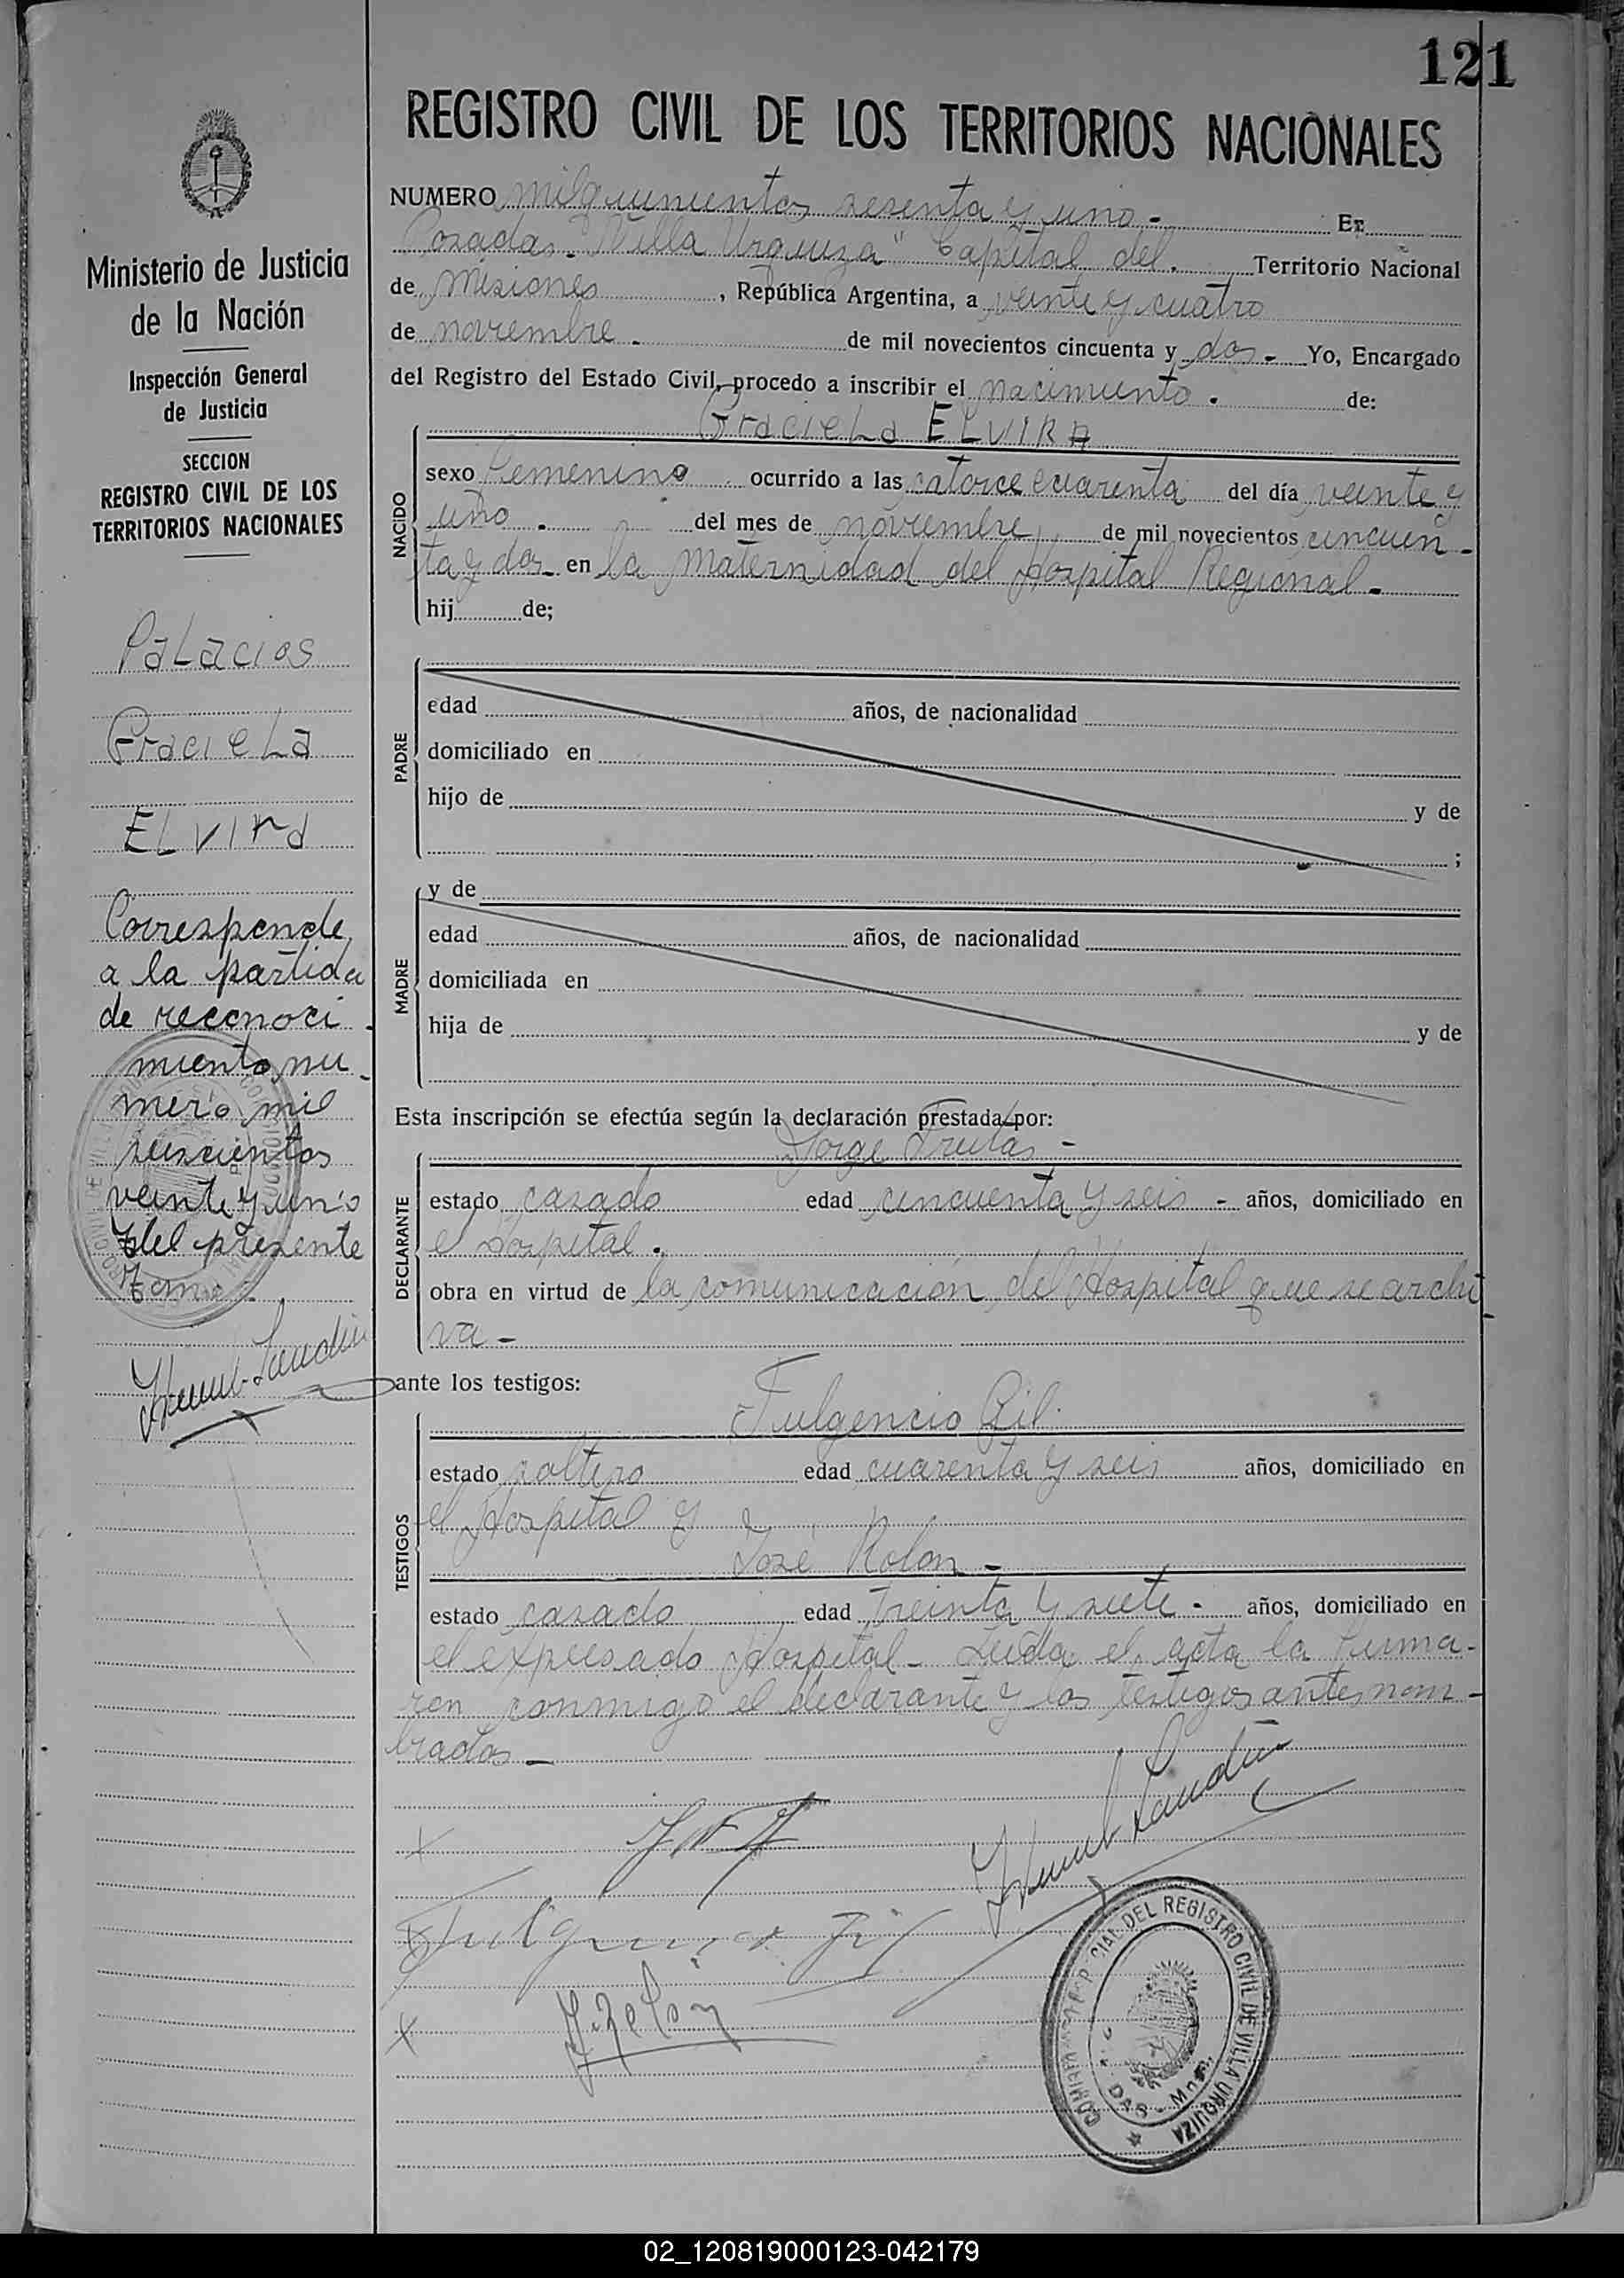 121
REGISTRO CIVIL DE LOS TERRITORIOS NACIONALES
Ministerio de Justicia
de la Nación
Inspección General
de Justicia
SECCION
REGISTRO CIVIL DE LOS
TERRITORIOS NACIONALES
Palacios
Graciela
Elvira
Corresponde
a la partida
de reconoci-
miento nu-
mero mil
seiscientos
veinte y uno
del presente
tomo
NUMERO mil quinientos sesenta y uno - En
Posadas - "Villa Urquiza" Capital del. Territorio Nacional
de Misiones, República Argentina, a veinte y cuatro
de noviembre. de mil novecientos cincuenta y dos - Yo, Encargado
del Registro del Estado Civil, procedo a inscribir el nacimiento. de:
Graciela ELVIRA
NACIDO
sexo femenino ocurrido a las catorce cuarenta del día veinte y
uno. del mes de noviembre de mil novecientos cincuen-
ta y dos - en la maternidad del Hospital Regional -
hij de;
PADRE
edad años, de nacionalidad
domiciliado en
hijo de y de
;
MADRE
y de
edad años, de nacionalidad
domiciliada en
hija de y de
Esta inscripción se efectúa según la declaración prestada por:
Jorge Frutas -
DECLARANTE
estado casado edad cincuenta y seis - años, domiciliado en
el Hospital.
obra en virtud de la comunicación del Hospital que se archi-
va -
ante los testigos:
TESTIGOS
Fulgencio Gil.
estado soltero edad cuarenta y seis años, domiciliado en
el Hospital y
José Rolon -
estado casado edad treinta y siete - años, domiciliado en
el expresado Hospital - Leida el acta la firma-
ron conmigo el declarante y los testigos antes nom-
brados -
Fulgencio Gil
J. Rolon
DEL REGISTRO CIVIL DE VILLA URQUIZA
02_120819000123-042179